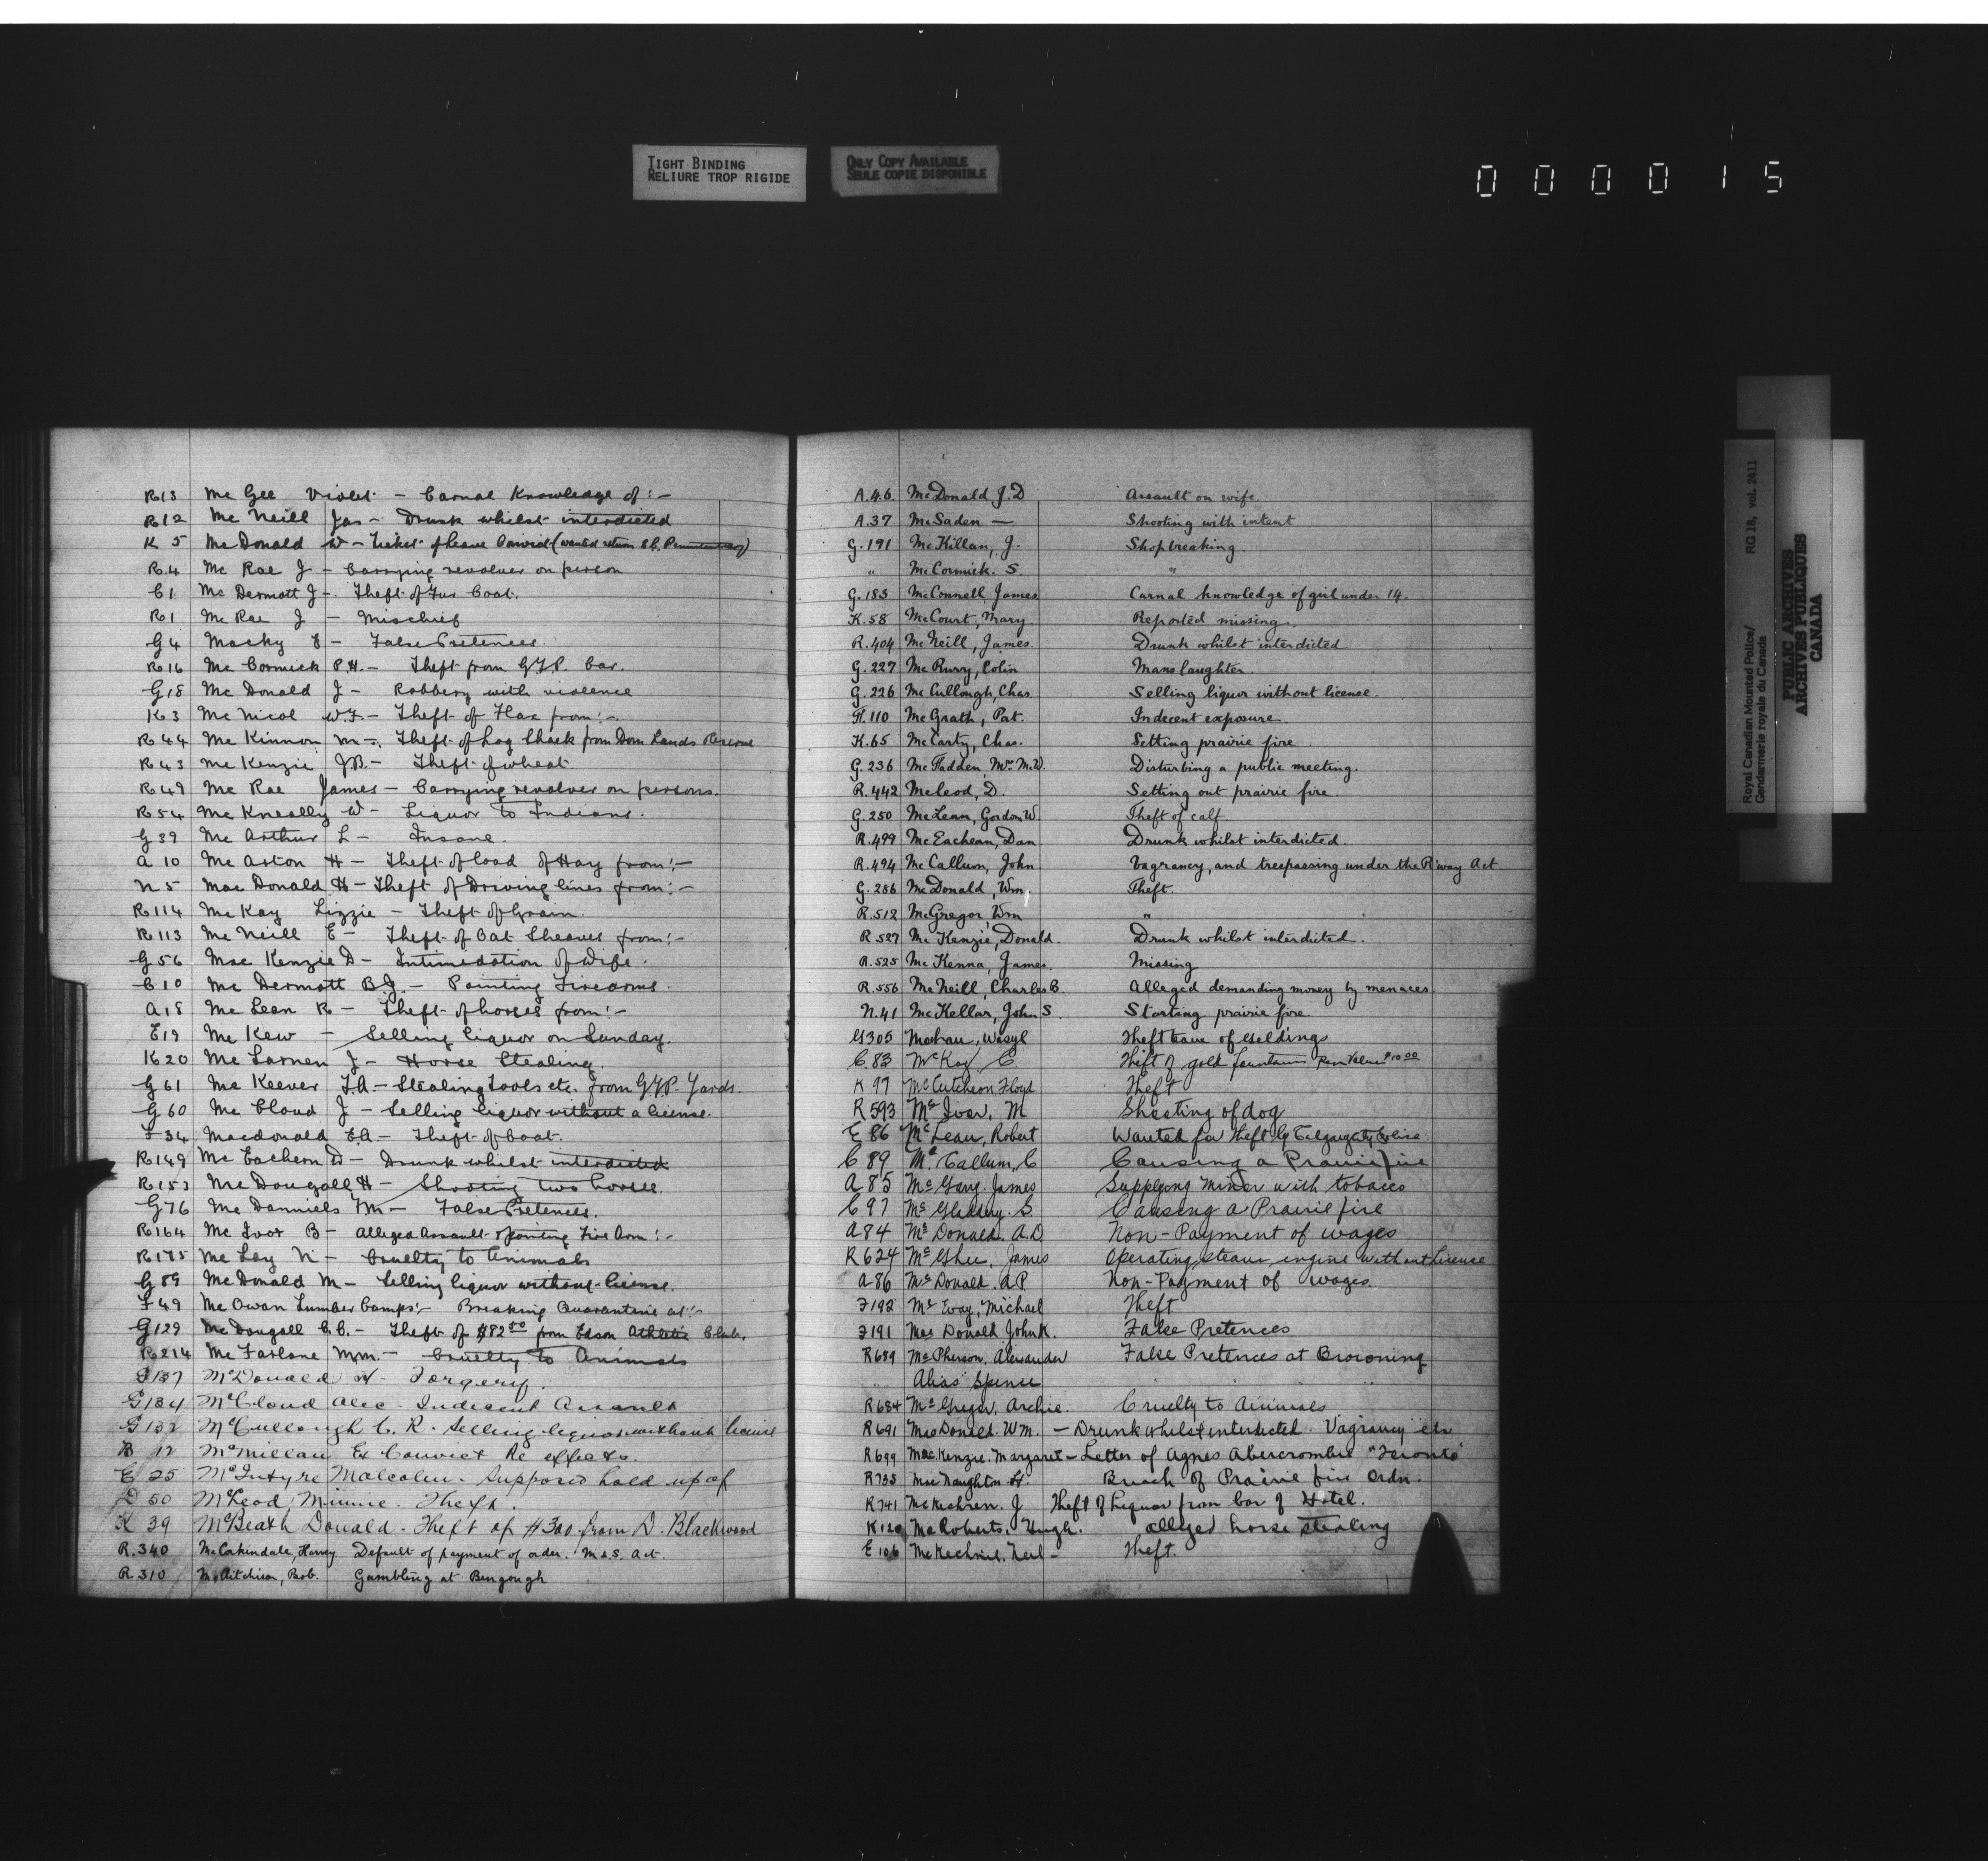 TIGHT BINDING
RELIURE TROP RIGIDE
ONLY COPY AVAILABLE
SEULE COPIE DISPONIBLE
0 0 0 0 1 5
R13 Mc Gee Violet - Carnal Knowledge of :-
R12 Mc Neill Jas - Drunk whilst interdicted
K 5 Mc Donald W - Ticket of leave (wanted return Penitentiary)
R.4 Mc Rae J - Carrying revolver on person
C1 Mc Dermott J - Theft of Fur Coat.
R1 Mc Rae J - Mischief
G4 Macky E - False Pretences.
R16 Mc Cormick P.H. - Theft from G.T.P. Car.
G18 Mc Donald J - Robbery with violence
K3 Mc Nicol W.F. - Theft of Flax from :-
R44 Mc Kinnon M -. Theft of Log Shack from Dom Lands Reserve
R43 Mc Kenzie J.B. - Theft of wheat
R49 Mc Rae James - Carrying revolver on persons.
R54 Mc Kneally W - Liquor to Indians.
G39 Mc Arthur L - Insane.
A 10 Mc Aston H - Theft of load of Hay from :-
N5 Mac Donald H - Theft of Driving lines from :-
R114 Mc Kay Lizzie - Theft of Grain.
R113 Mc Neill E - Theft of Oat Sheaves from :-
G56 Mac Kenzie D - Intimidation of Wife.
C10 Mc Dermott B.J. - Pointing Firearms.
A18 Mc Lean R - Theft of horses from :-
E19 Mc Kew - Selling liquor on Sunday.
K20 Mc Larnen J - Horse Stealing.
G61 Mc Keever F.A. - Stealing Tools etc. from G.T.P. Yards.
G60 Mc Cloud J - Selling liquor without a license.
F34 Macdonald E.A. - Theft of Coat.
R149 Mc Eachern D - Drunk whilst interdicted
R153 Mc Dougall H - Shooting two horses.
G76 Mc Danniels Wm - False Pretences.
R164 Mc Ivor B - Alleged Assault & pointing Fire Arm :-
R175 Mc Lay N - Cruelty to Animals
G89 Mc Donald M - Selling liquor without license.
F49 Mc Owan Lumber Camps :- Breaking Quarantine at :-
G129 Mc Dougall C.C. - Theft of $82.50 from Edson Athletic Club.
R214 Mc Farlane Wm. - Cruelty to Animals
G137 McDonald W - Forgery.
G134 McCloud Alec - Indecent Assault
G132 McCullough C. R. - Selling liquor without license
B 12 McMillan Ex Convict Re effects.
E 25 McIntyre Malcolm. Supposed hold up of
D 50 McLeod Minnie. Theft.
K 39 McBeath Donald. Theft of $300 from D. Blackwood
R.340 McCorkindale, Harvey Default of payment of order. M & S. Act.
R.310 McAitchison, Bob. Gambling at Bengough
A.46 McDonald J.D Assault on wife.
A.37 McSaden — Shooting with intent
G.191 McKillan, J. Shopbreaking.
" McCormick. S. "
G.183 McConnell, James Carnal knowledge of girl under 14.
K.58 McCourt, Mary Reported missing.
R.404 McNeill, James. Drunk whilst interdicted
G.227 McRurry, Colin Manslaughter.
G.226 McCullough, Chas. Selling liquor without license.
H.110 McGrath, Pat. Indecent exposure.
K.65 McCarty, Chas. Setting prairie fire.
G.236 McFadden, Mrs M.W. Disturbing a public meeting.
R.442 McLeod, D. Setting out prairie fire.
G.250 McLean, Gordon W. Theft of calf
R.499 McEachean, Dan Drunk whilst interdicted.
R.494 McCallum, John Vagrancy, and trespassing under the R'way Act
G.286 McDonald, Wm, Theft.
R.512 McGregor, Wm "
R 527 McKenzie, Donald. Drunk whilst interdicted.
R.525 McKenna, James. Missing
R.556 McNeill, Charles B. Alleged demanding money by menaces
N.41 McKellar, John S. Starting prairie fire.
G305 Wasyl Theft team of Geldings
C.83 McKay C Theft of gold fountain pen Value $10.00
K 97 McCutcheon, Floyd Theft
R593 McIvor, M Shooting of dog
E 86 McLean, Robert Wanted for theft by Calgary City Police
C 89 McCallum, C Causing a Prairie fire
A 85 McGary. James Supplying minor with tobacco
C 97 McGladery. S Causing a Prairie fire
A 84 McDonald. A.D Non-Payment of wages
R624 McGhee, James Operating steam engine without license
A 86 McDonald. A.P Non-Payment of wages.
F192 McEvoy, Michael Theft
F191 MacDonald John K. False Pretences
R689 McPherson. Alexander False Pretences at Browning
" Alias Spence " "
R684 McGregor, Archie. Cruelty to Animals
R691 MacDonald. WM. - Drunk whilst interdicted. Vagrancy etc
R699 MacKenzie. Margaret - Letter of Agnes Abercrombie "Toronto"
R735 MacNaughton Breach of Prairie fire Ordn.
R741 McKechren. J Theft of Liquor from bar of Hotel.
K120 McRoberts, Hugh. alleged horse stealing
E 106 McKechnie. Neil - Theft.
Royal Canadian Mounted Police/ RG 18, vol. 2411
Gendarmerie royale du Canada
PUBLIC ARCHIVES
ARCHIVES PUBLIQUES
CANADA